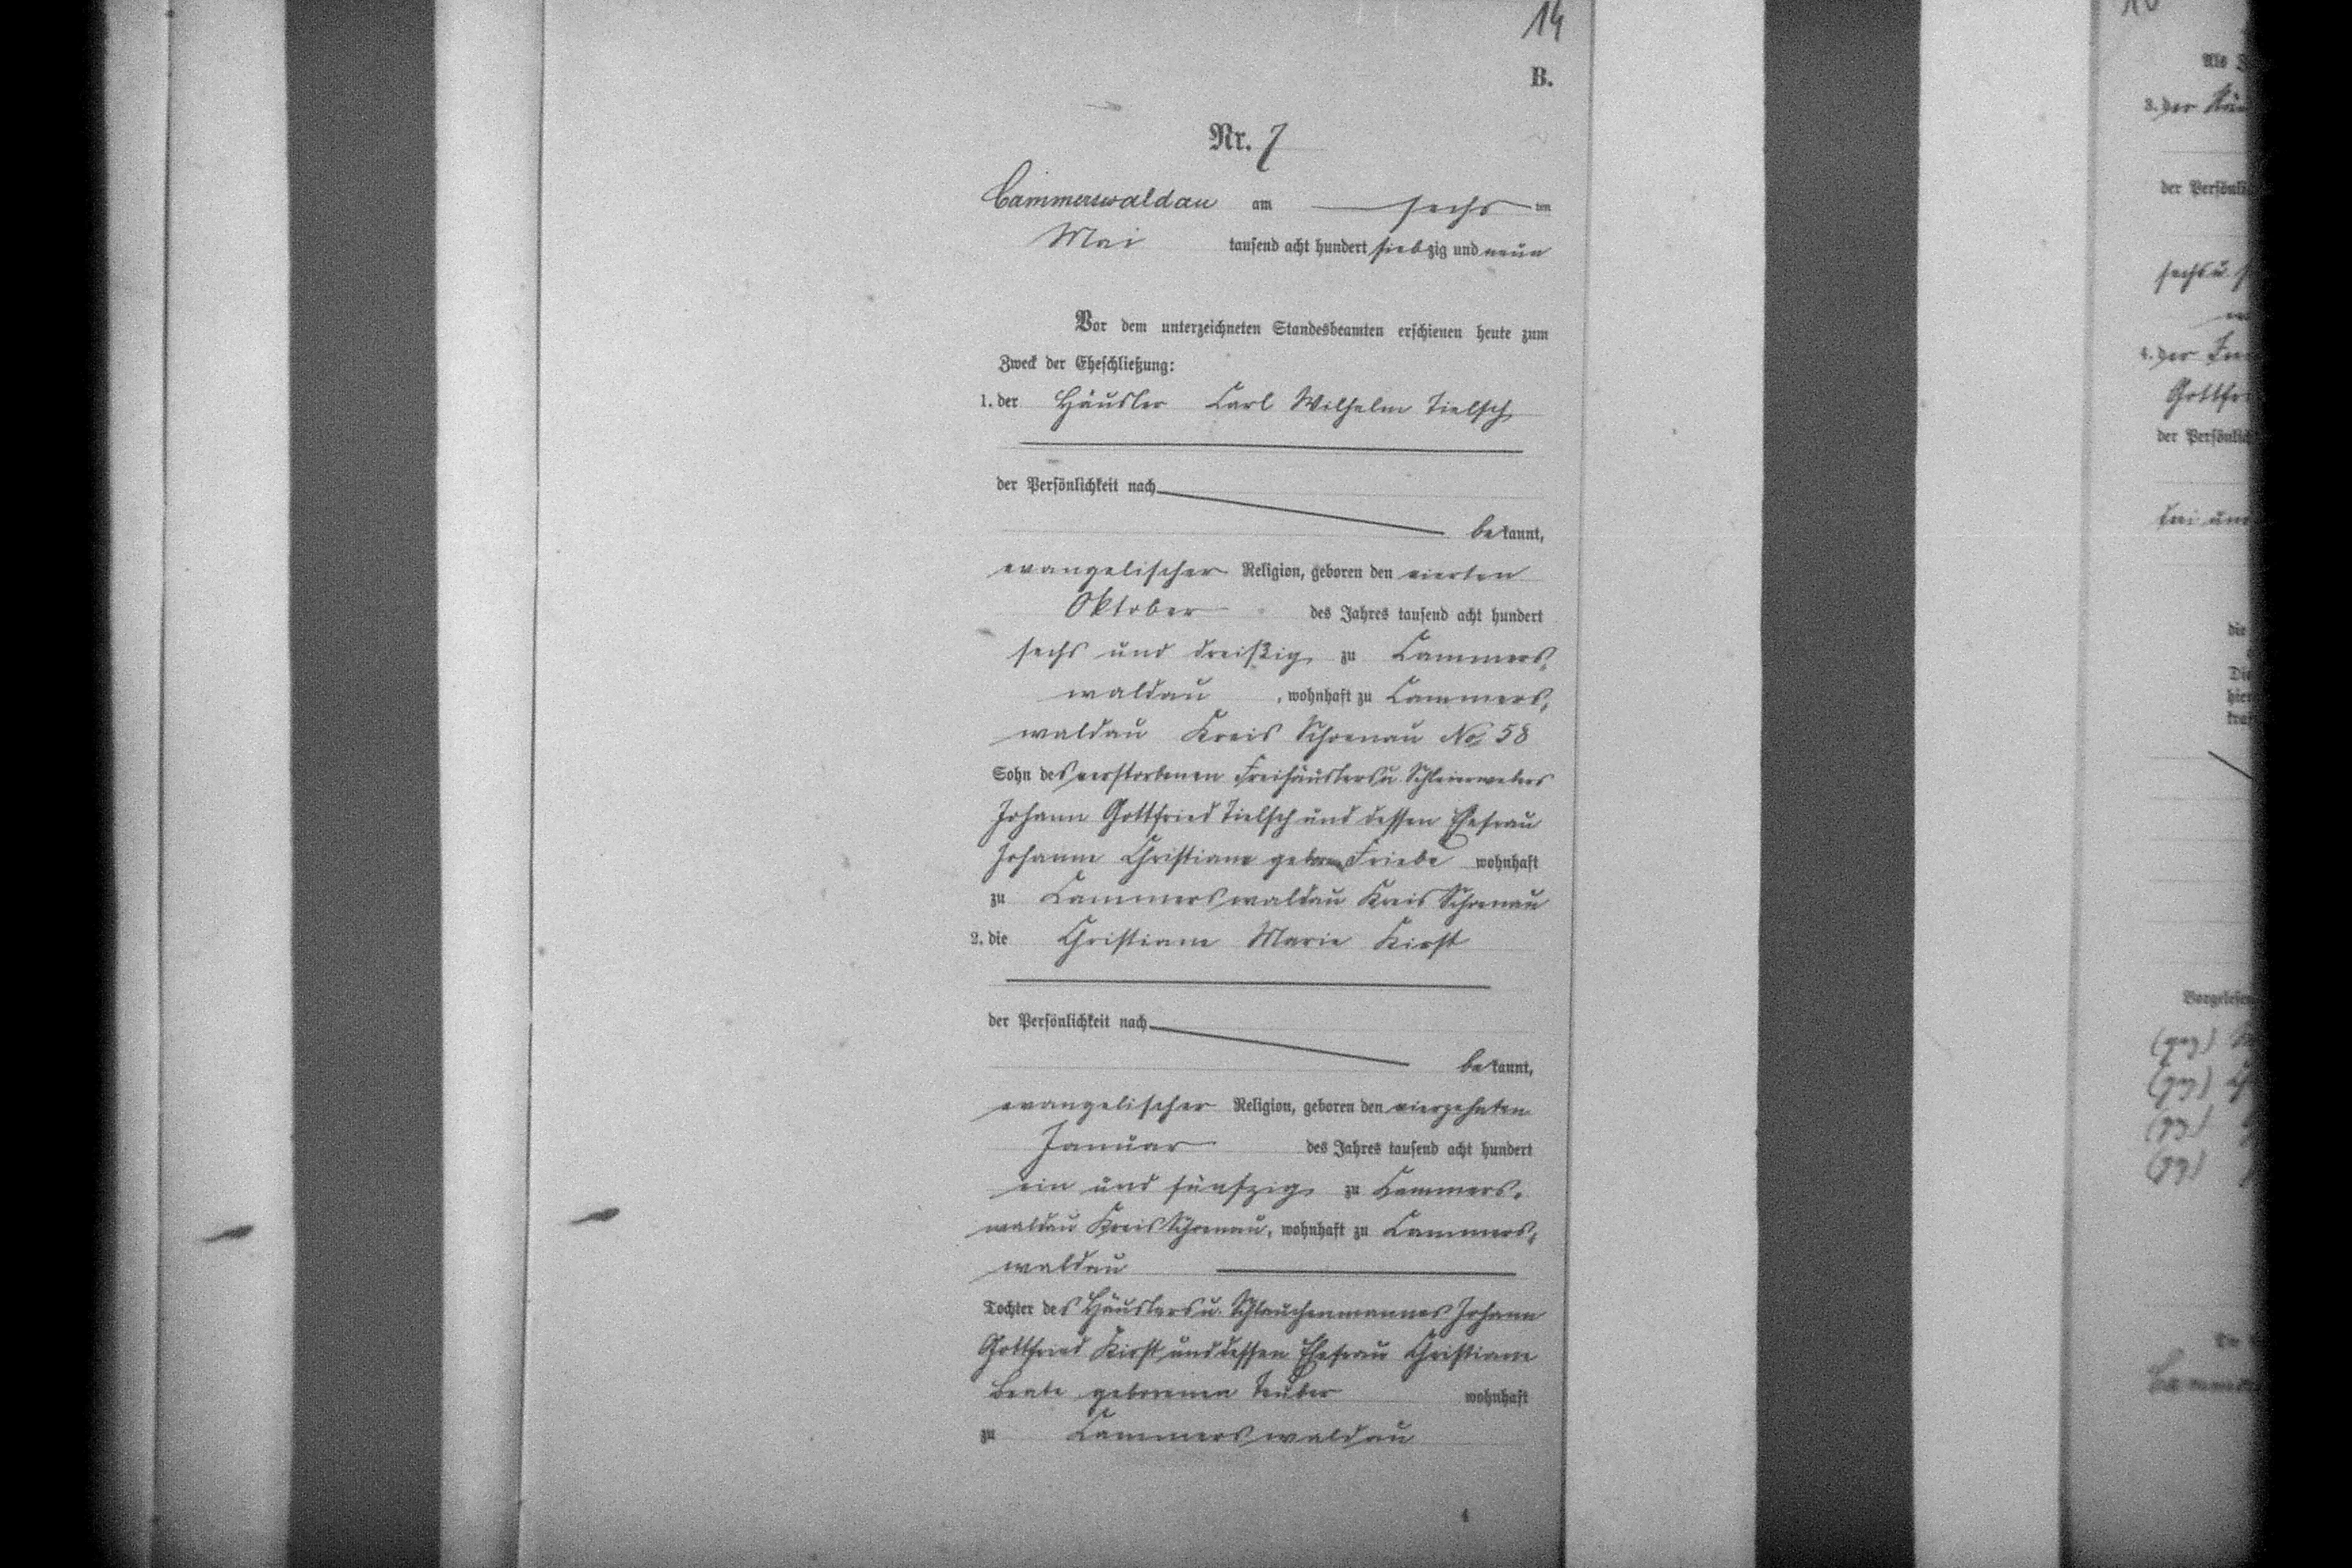 14
B.
Nr. 7
Cammerswaldau am sechs ten
Mai tausend acht hundert siebzig und neun
Vor dem unterzeichneten Standesbeamten erschienen heute zum
Zweck der Eheschließung:
1. der Häusler Carl Wilhelm Tielsch
der Persönlichkeit nach
bekannt,
evangelischer Religion, geboren den vierten
Oktober des Jahres tausend acht hundert
sechs und dreißig zu Cammers,
waldau, wohnhaft zu Cammers,
waldau Kreis Schoenau No 58
Sohn des verstorbenen Freihäuslers u. Schleierwebers
Johann Gottfried Tielsch und dessen Ehefrau
Johanne Christiane geborn Friebe wohnhaft
zu Cammerswaldau Kreis Schoenau
2. die Christiane Marie Kirst
der Persönlichkeit nach
bekannt,
evangelischer Religion, geboren den vierzehnten
Januar des Jahres tausend acht hundert
ein und fünfzig zu Cammers,
waldau Kreis Schoenau, wohnhaft zu Cammers,
waldau
Tochter des Häuslers u. Johann
Gottfried Kirst und dessen Ehefrau Christiane
Beate geborenen Teuber wohnhaft
zu Cammerswaldau
4
Als
3. der
der
sechs u.
4. der
Gottfri
der
die
(gez)
(gez)
(gez)
(gez)